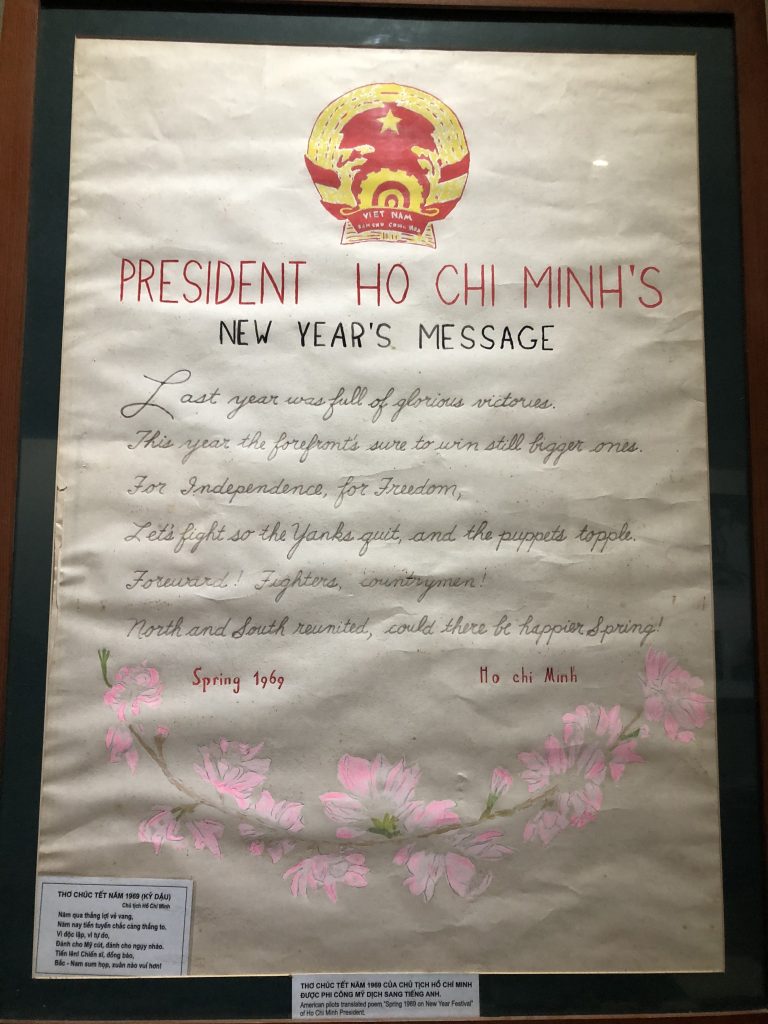 VIET NAM
PRESIDENT HO CHI MINH'S
NEW YEAR'S MESSAGE
Last year was full of glorious victories.
This year the forefront's sure to win still bigger ones.
For Independence, for Freedom,
Let's fight so the Yanks quit, and the puppets topple.
Foreward! Fighters, countrymen!
North and South reunited, could there be happier Spring!
Spring 1969
Ho chi Minh
THƠ CHÚC TẾT NĂM 1969 (KỶ DẬU)
Chủ tịch Hồ Chí Minh
Năm qua thắng lợi vẻ vang,
Năm nay tiền tuyến chắc càng thắng to.
Vì độc lập, vì tự do,
Đánh cho Mỹ cút, đánh cho ngụy nhào.
Tiến lên! Chiến sĩ, đồng bào,
Bắc - Nam sum họp, xuân nào vui hơn!
THƠ CHÚC TẾT NĂM 1969 CỦA CHỦ TỊCH HỒ CHÍ MINH
ĐƯỢC PHI CÔNG MỸ DỊCH SANG TIẾNG ANH.
American pilots translated poem,"Spring 1969 on New Year Festival"
of Ho Chi Minh President.